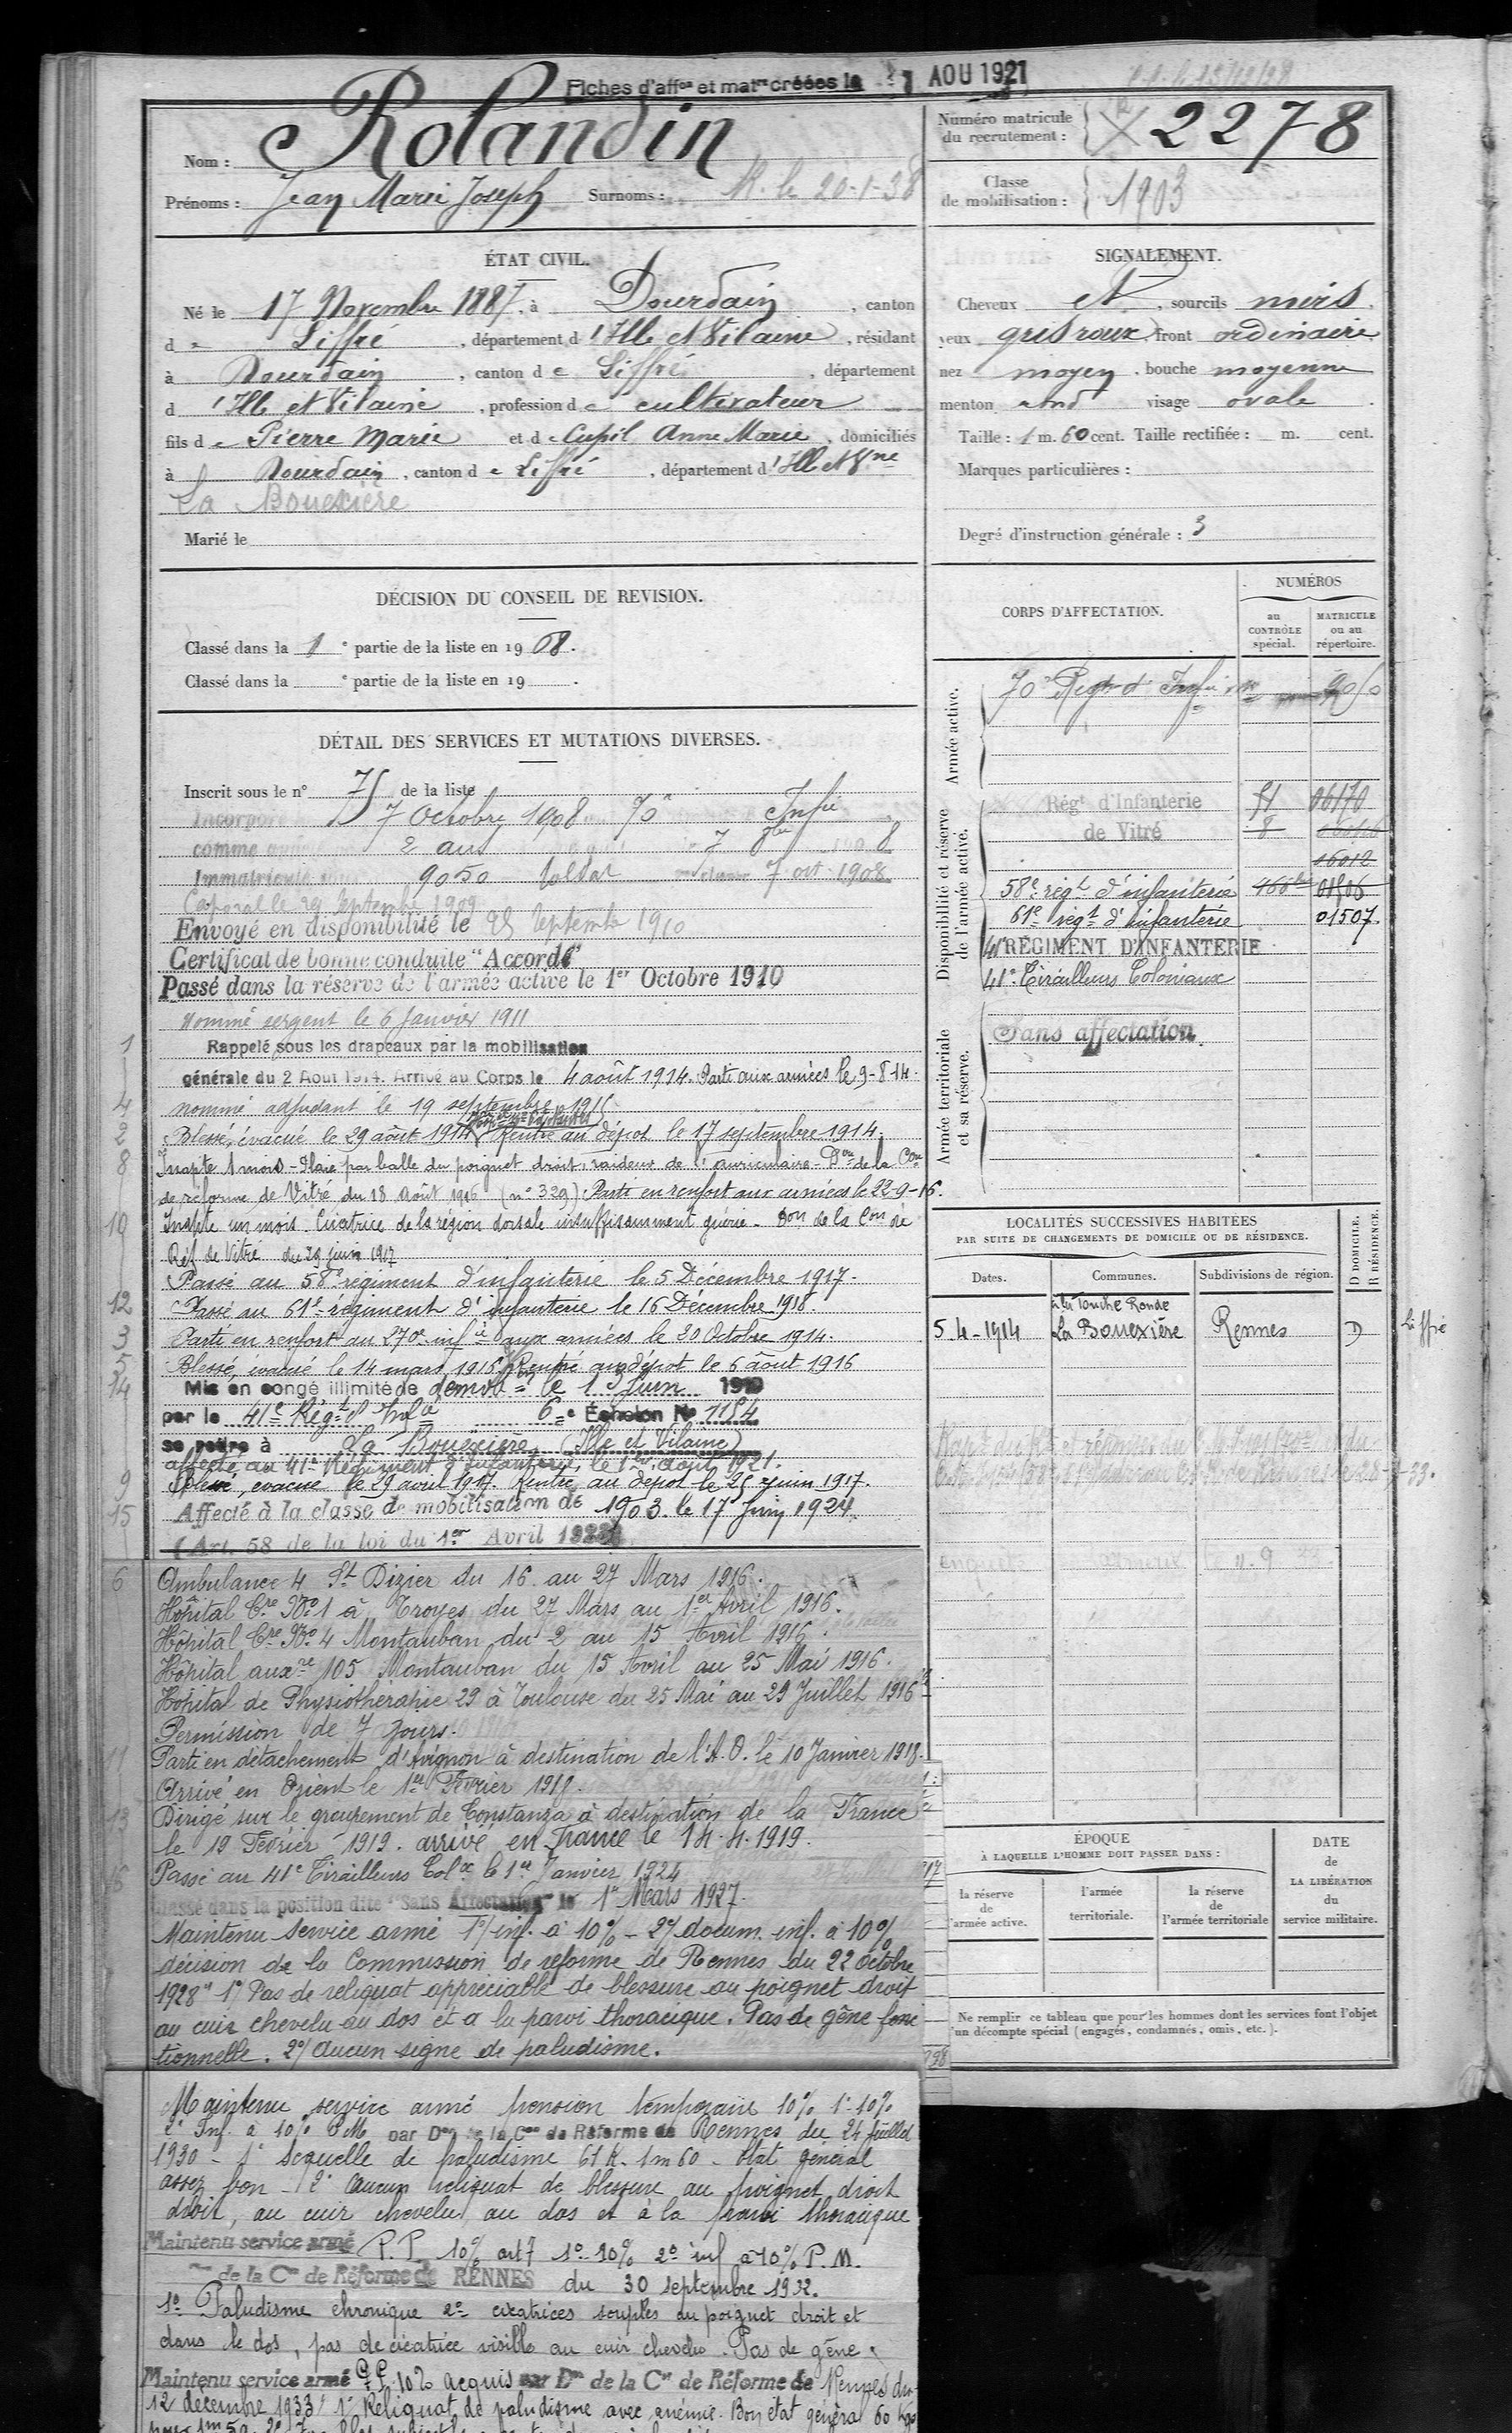 Fiches d'aff<sup>on</sup> et mat<sup>re</sup> créées le AOU 1921
Nom : Rolandin
Prénoms : Jean Marie Joseph Surnoms : R. le 20-1-38
Numéro matricule du recrutement : 2278
Classe de mobilisation : 1903
ÉTAT CIVIL.
Né le 17 Novembre 1887, à Dourdain, canton
de Liffré, département d'Ille et Vilaine, résidant
à Dourdain, canton de Liffré, département
d'Ille et Vilaine, profession de cultivateur
fils de Pierre Marie et de Cupil Anne Marie, domiciliés
à Dourdain, canton de Liffré, département d'Ille et Vne
La Bouexière
Marié le
SIGNALEMENT.
Cheveux et, sourcils noirs
yeux gris roux, front ordinaire
nez moyen, bouche moyenne
menton rond visage ovale.
Taille : 1 m. 60 cent. Taille rectifiée : m. cent.
Marques particulières :
Degré d'instruction générale : 3
DÉCISION DU CONSEIL DE REVISION.
Classé dans la 1e partie de la liste en 1908.
Classé dans la e partie de la liste en 19 .
DÉTAIL DES SERVICES ET MUTATIONS DIVERSES.
Inscrit sous le n° 75 de la liste
Incorporé 7 Octobre 1908 70e Infie
comme 2 ans 7 8bre 1908
Immatriculé 9050 Soldat 7 oct 1908
Caporal le 29 Septembre 1909
Envoyé en disponibilité le 25 Septembre 1910
Certificat de bonne conduite "Accordé"
Passé dans la réserve de l'armée active le 1er Octobre 1910
Nommé sergent le 6 Janvier 1911
1 Rappelé sous les drapeaux par la mobilisation
générale du 2 Aout 1914. Arrivé au Corps le 4 août 1914. Parti aux armées le 9-8-14.
4 nommé adjudant le 19 septembre 1915
2 Blessé, évacué le 29 août 1914. Rentré au dépot le 17 septembre 1914.
8 Inapte 1 mois - Plaie par balle du poignet droit, raideur de l'auriculaire - Don de la Con
de réforme de Vitré du 18 Août 1916 (n° 329). Parti en renfort aux armées le 22-9-16.
10 Inapte un mois. Cicatrice de la région dorsale insuffisamment guérie - Don de la Con de
Réf de Vitré du 29 juin 1917
Passé au 58e régiment d'infanterie le 5 Décembre 1917.
12 Passé au 61e régiment d'infanterie le 16 Décembre 1918.
3 Parti en renfort au 270e infie aux armées le 20 Octobre 1914.
5 Blessé, évacué le 14 mars 1916. Rentré au dépot le 6 août 1916
14 Mis en congé illimité de démon le 1 Juin 1919
par le 41e Régt d'Infie 6e Echelon No 1154
se retire à La Bouëxière (Ille et Vilaine)
affecté au 41e Régiment d'Infanterie, le 1er août 1921.
9 Blessé, évacué le 29 avril 1917. Rentré au dépot le 25 juin 1917.
15 Affecté à la classe de mobilisation de 1903. le 17 Juin 1924.
(Art. 58 de la loi du 1er Avril 1923)
6 Ambulance 4 St Dizier du 16 au 27 Mars 1916.
Hôpital Cre No 1 à Troyes du 27 Mars au 1er Avril 1916.
Hôpital Cre No 4 Montauban du 2 au 15 Avril 1916.
Hôpital auxre 105 Montauban du 15 Avril au 25 Mai 1916.
Hôpital de Physiothérapie 29 à Toulouse du 25 Mai au 29 Juillet 1916
Permission de 7 jours.
11 Parti en détachement d'Avignon à destination de l'A.O. le 10 Janvier 1918.
Arrivé en Orient le 1er Février 1918.
13 Dirigé sur le groupement de Constanza à destination de la France
le 19 Février 1919. arrivé en France le 14.4.1919.
Passé au 41e Tirailleurs Colx le 1er Janvier 1924
Classé dans la position dite "Sans Affectation" le 1er Mars 1927.
Maintenu service armé 1°/ inf. à 10% - 2°/ docum. inf. à 10%
décision de la Commission de réforme de Rennes du 22 octobre
1928 "1° Pas de reliquat appréciable de blessure au poignet droit
au cuir chevelu au dos et a la paroi thoracique. Pas de gêne fonc
tionnelle. 2°/ Aucun signe de paludisme.
Maintenu service armé pension temporaire 10% 1° 10%
2° Inf. à 10% P.M. par Don de la Con de Réforme de Rennes du 24 juillet
1930 - 1° Sequelle de paludisme 61 K. 1m60 - Etat général
assez bon - 2° Aucun reliquat de blessure au poignet droit
droit, au cuir chevelu, au dos et à la paroi thoracique
Maintenu service armé P.P. 10% art 7 1° 10% 2° inf à 10% P.M.
de la Con de Réforme de RENNES du 30 septembre 1932.
1° Paludisme chronique 2° cicatrices souples au poignet droit et
dans le dos, pas de cicatrice visible au cuir chevelu. Pas de gêne.
Maintenu service armé P.P. 10% acquis par Don de la Con de Réforme de Rennes du
12 décembre 1933 1° Reliquat de paludisme avec anémie. Bon état général 60 kgs
pour 1m59. 2°
CORPS D'AFFECTATION.
NUMÉROS
au CONTRÔLE spécial.
MATRICULE ou au répertoire.
Armée active.
70e Regt d'Infie 9050
Disponibilité et réserve de l'armée active.
Régt d'Infanterie 51 06170
de Vitré 8
16012
58e régt d'infanterie 01506
61e régt d'infanterie 01507
41e RÉGIMENT D'INFANTERIE
41e Tirailleurs Coloniaux
Armée territoriale et sa réserve.
Sans affectation.
LOCALITÉS SUCCESSIVES HABITÉES
PAR SUITE DE CHANGEMENTS DE DOMICILE OU DE RÉSIDENCE.
Dates. Communes. Subdivisions de région. D DOMICILE. R RÉSIDENCE.
à la Touche Ronde
5-4-1914 La Bouexière Rennes D Liffré
ÉPOQUE
À LAQUELLE L'HOMME DOIT PASSER DANS :
la réserve de l'armée active.
l'armée territoriale.
la réserve de l'armée territoriale
DATE de LA LIBÉRATION du service militaire.
Ne remplir ce tableau que pour les hommes dont les services font l'objet
d'un décompte spécial (engagés, condamnés, omis, etc.).